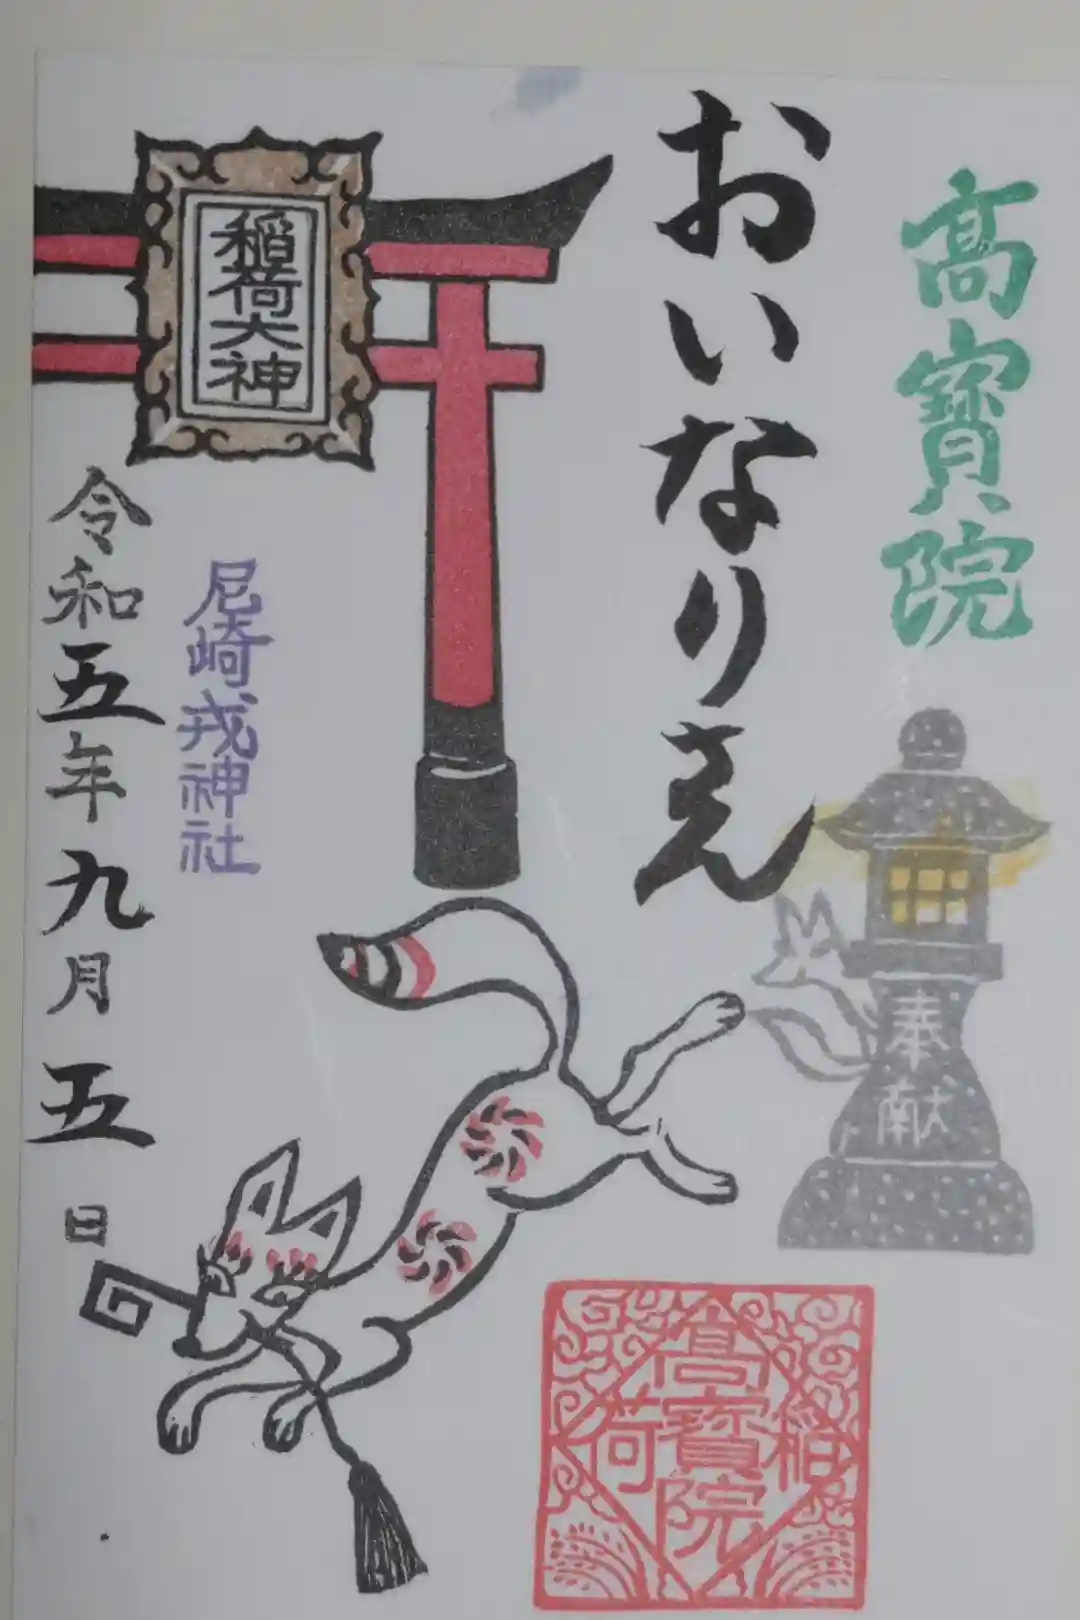 髙寳院
おいなりさん
稲荷大神
尼崎戎神社
令和五年九月五日
奉献
稲荷
髙寳院